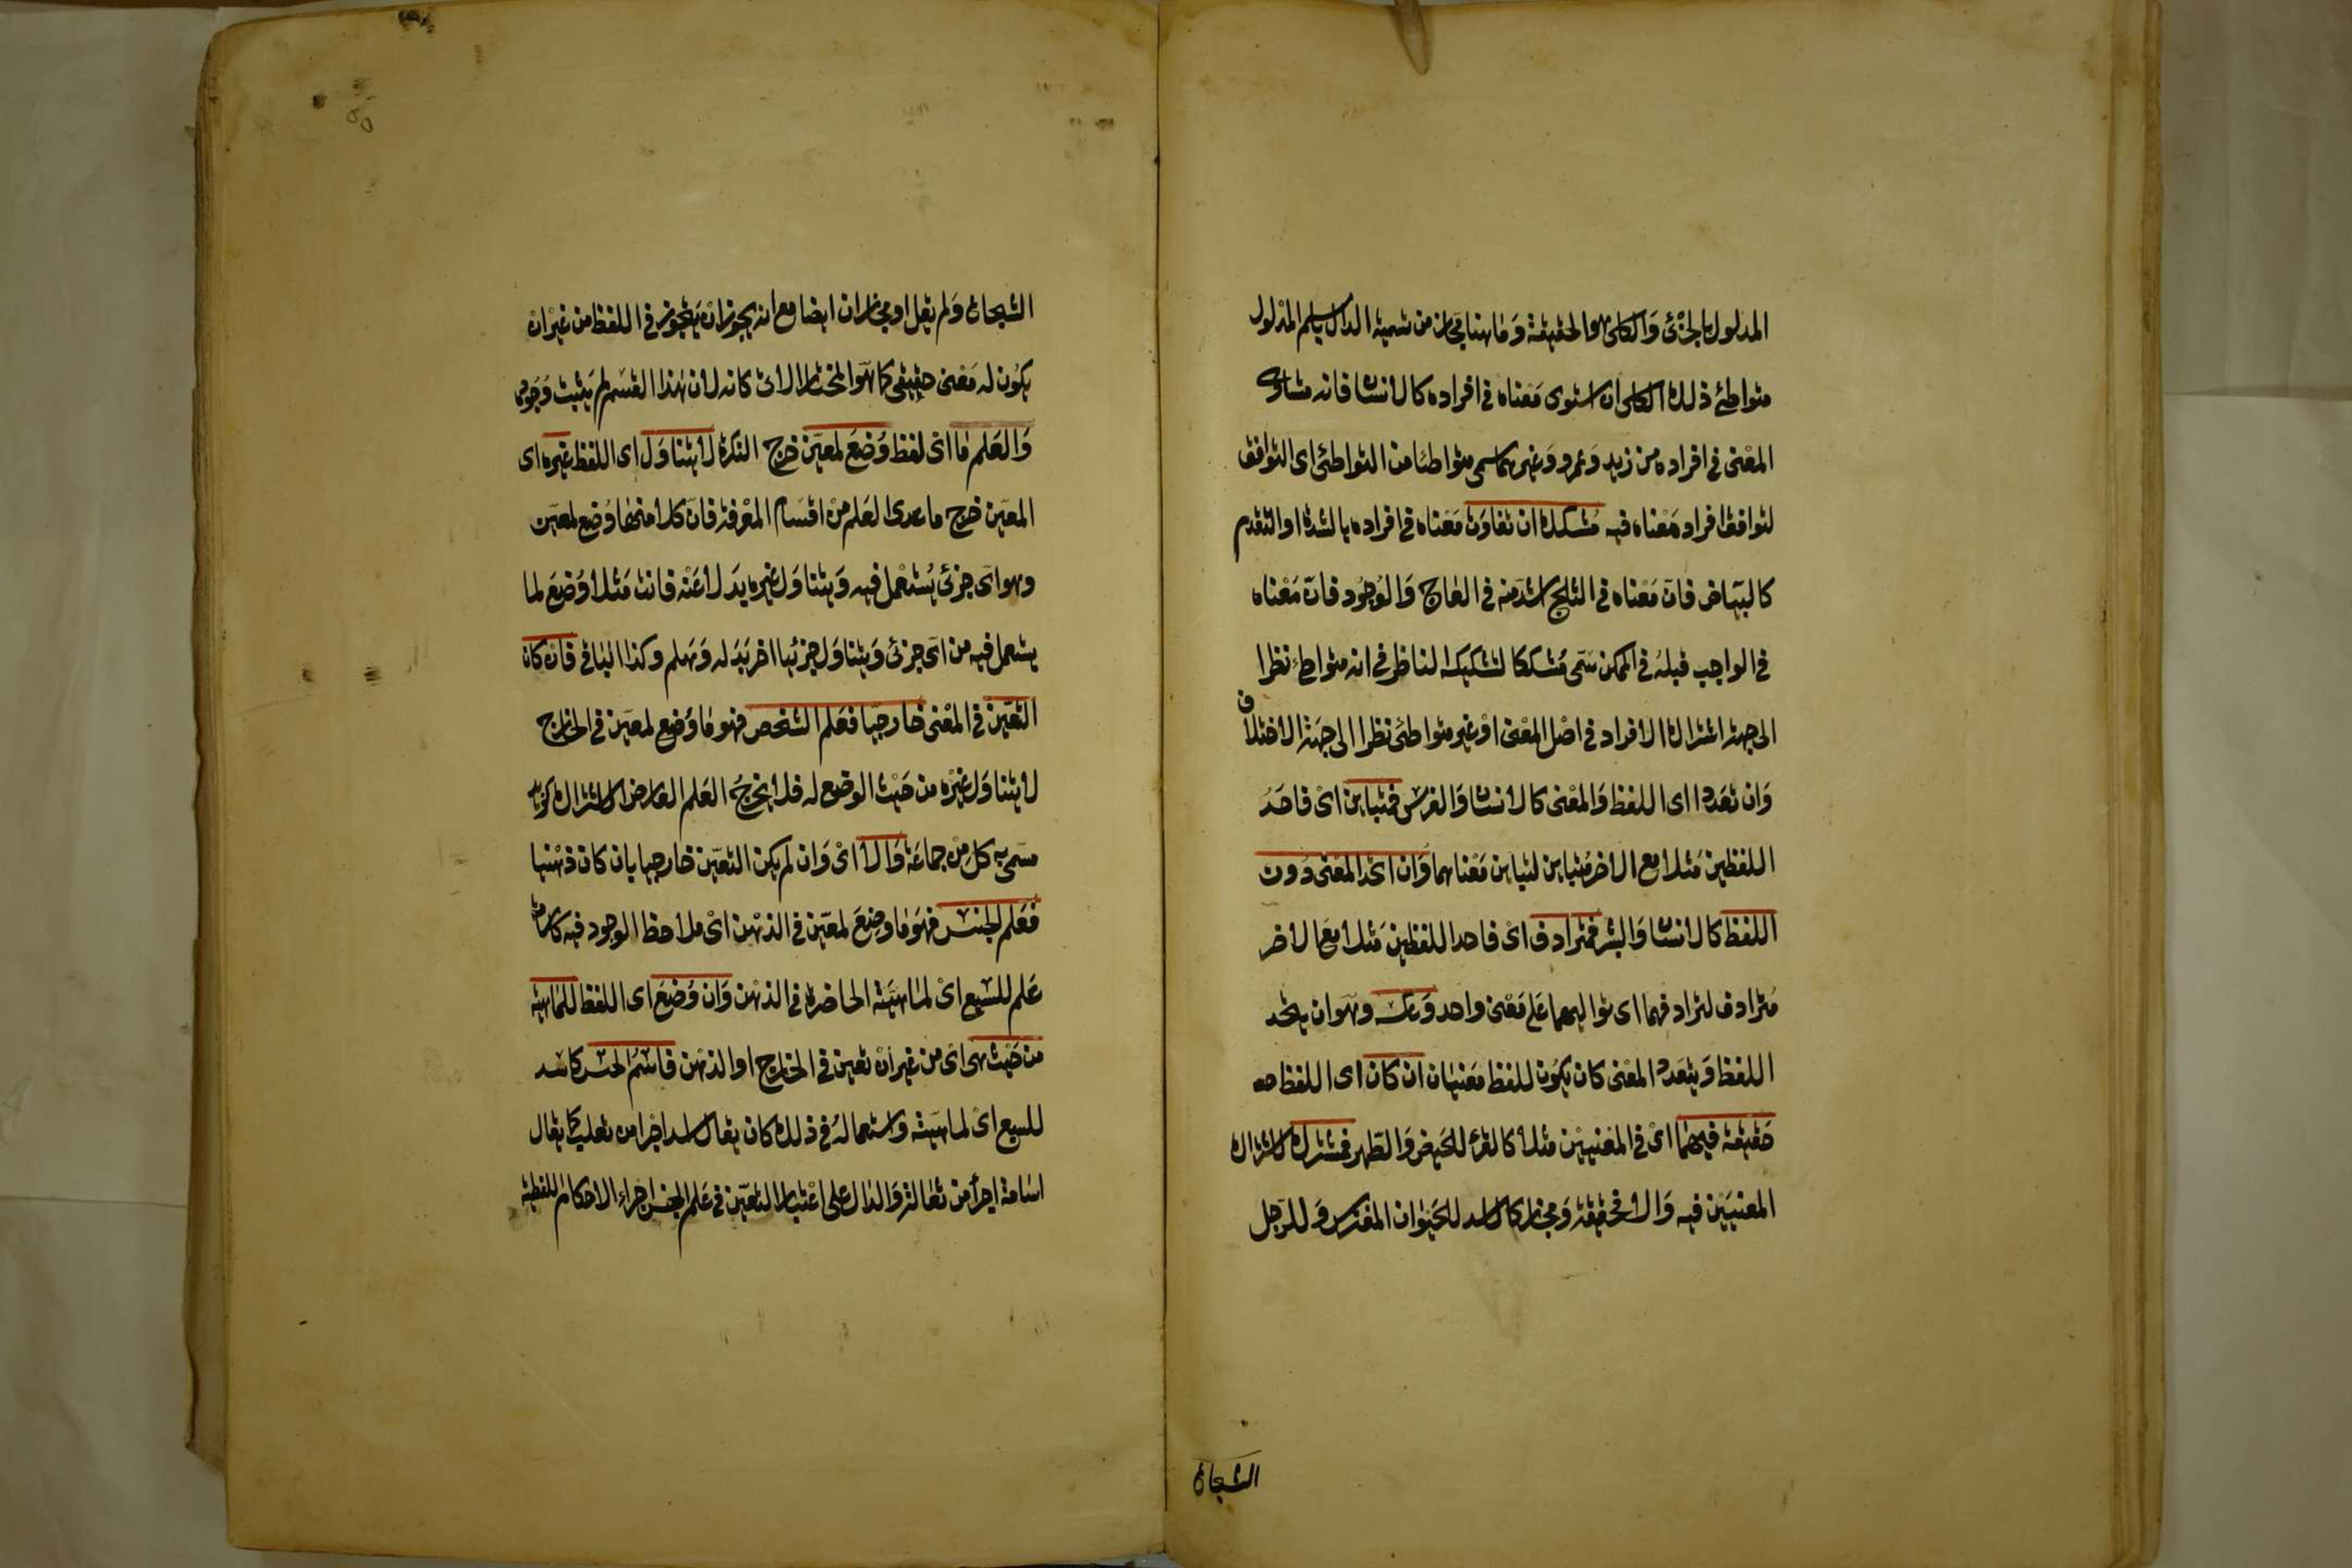 المدلول بالجزئ والكلى هو الحقيقة وما هنا مجاز من تسمية الدال باسم المدلول
متواطئ ذلك الكلى ان استوى معناه فى افراده كالانسان فانه متساوى
المعنى فى افراده من زيد وعمرو وغيرهما سمى متواطئا من التواطئ اى التوافق
لتوافق افراد معناه فيه مشكك ان تفاوت معناه فى افراده بالشدة او التقدم
كالبياض فان معناه فى الثلج اشد منه فى العاج والوجود فان معناه
فى الواجب قبله فى الممكن سمى مشككا لتشكيكه الناظر فى انه متواطئ نظرا
الى جهة اشتراك الافراد فى اصل المعنى او غير متواطئ نظرا الى جهة الاختلاف
وان تعددا اى اللفظ والمعنى كالانسان والفرس فمتباين اى فاحد
اللفظين مثلا مع الاخر متباين لتباين معناهما وان اتحد المعنى دون
اللفظ كالانسان والبشر فمترادف اى فاحد اللفظين مثلا مع الاخر
مترادف لترادفهما اى تواليهما على معنى واحد وعكسه وهو ان يتحد
اللفظ ويتعدد المعنى كان يكون للفظ معنيان ان كان اى اللفظ
حقيقة فيهما اى فى المعنيين مثلا كالقرء للحيض والطهر فمشترك لاشتراك
المعنيين فيه والا فحقيقة ومجاز كالاسد للحيوان المفترس وللرجل
الشجاع
الشجاع ولم يقل او مجازان ايضا مع انه يجوز ان يتجوز فى اللفظ من غير ان
يكون له معنى حقيقى كما هو المختار الاتى كانه لان هذا القسم لم يثبت وجوده
والعلم ما اى لفظ وضع لمعين خرج النكرة لا يتناول اى اللفظ غيره اى
المعين خرج ما عدى العلم من اقسام المعرفة فان كلا منها وضع لمعين
وهو اى جزئ يستعمل فيه ويتناول غيره بدلا عنه فانت مثلا وضع لما
يستعمل فيه من اى جزئ ويتناول جزئيا اخر بدله وهلم وكذا الباقى فان كان
التعين فى المعنى خارجيا فعلم الشخص فهو ما وضع لمعين فى الخارج
لا يتناول غيره من حيث الوضع له فلا يخرج العلم العارض الاشتراك كزيد
مسمى به كل من جماعة والا اى وان لم يكن التعين خارجيا بان كان ذهنيا
فعلم الجنس فهو ما وضع لمعين فى الذهن اى ملاحظ الوجود فيه كاسامة
علم للسبع اى لماهيته الحاضرة فى الذهن وان وضع اى اللفظ للماهية
من حيث هى اى من غير ان تعين فى الخارج او الذهن فاسم الجنس كاسد
للسبع اى لماهيته واستعماله فى ذلك كان يقال اسد اجرا من ثعلب كما يقال
اسامة اجرأ من ثعالة والدال على اعتبار التعين فى علم الجنس اجراء الاحكام اللفظية